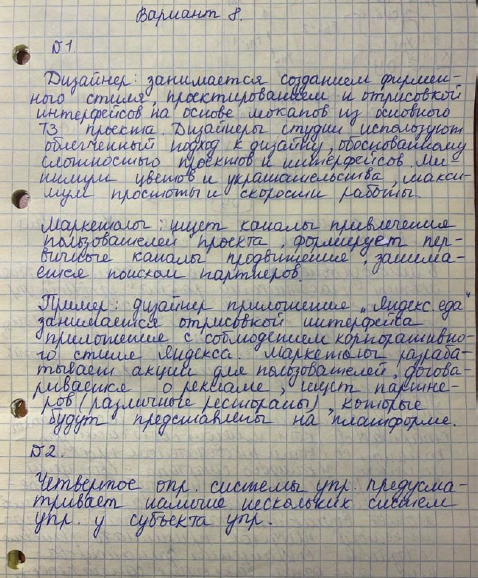 Вариант 8.
D1
Дизайнер: занимается созданием фирмен-
ного стиля, проектированием и отрисовкой
интерфейсов на основе мокапов из основного
ТЗ проекта. Дизайнеры студии используют
облегченный подход к дизайну, обоснованному
сложностью проектов и интерфейсов. Ми
нимум цветов и украшательства, макси-
мум простоты и скорости работы.
Маркетолог: ищет каналы привлечения
пользователей проекта, формирует пер-
вичные каналы продвижения, занима-
ется поиском партнеров.
Пример: дизайнер приложения „Яндекс.еда"
занимается отрисовкой интерфейса
приложения с соблюдением корпоративно-
го стиля Яндекса. Маркетолог разраба-
тывает акции для пользователей, догова-
ривается о рекламе, ищет партне-
ров (различные рестораны), которые
будут представлены на платформе.
D2.
Четвертое опр. системы упр. предусма-
тривает наличие нескольких систем
упр. у субъекта упр.